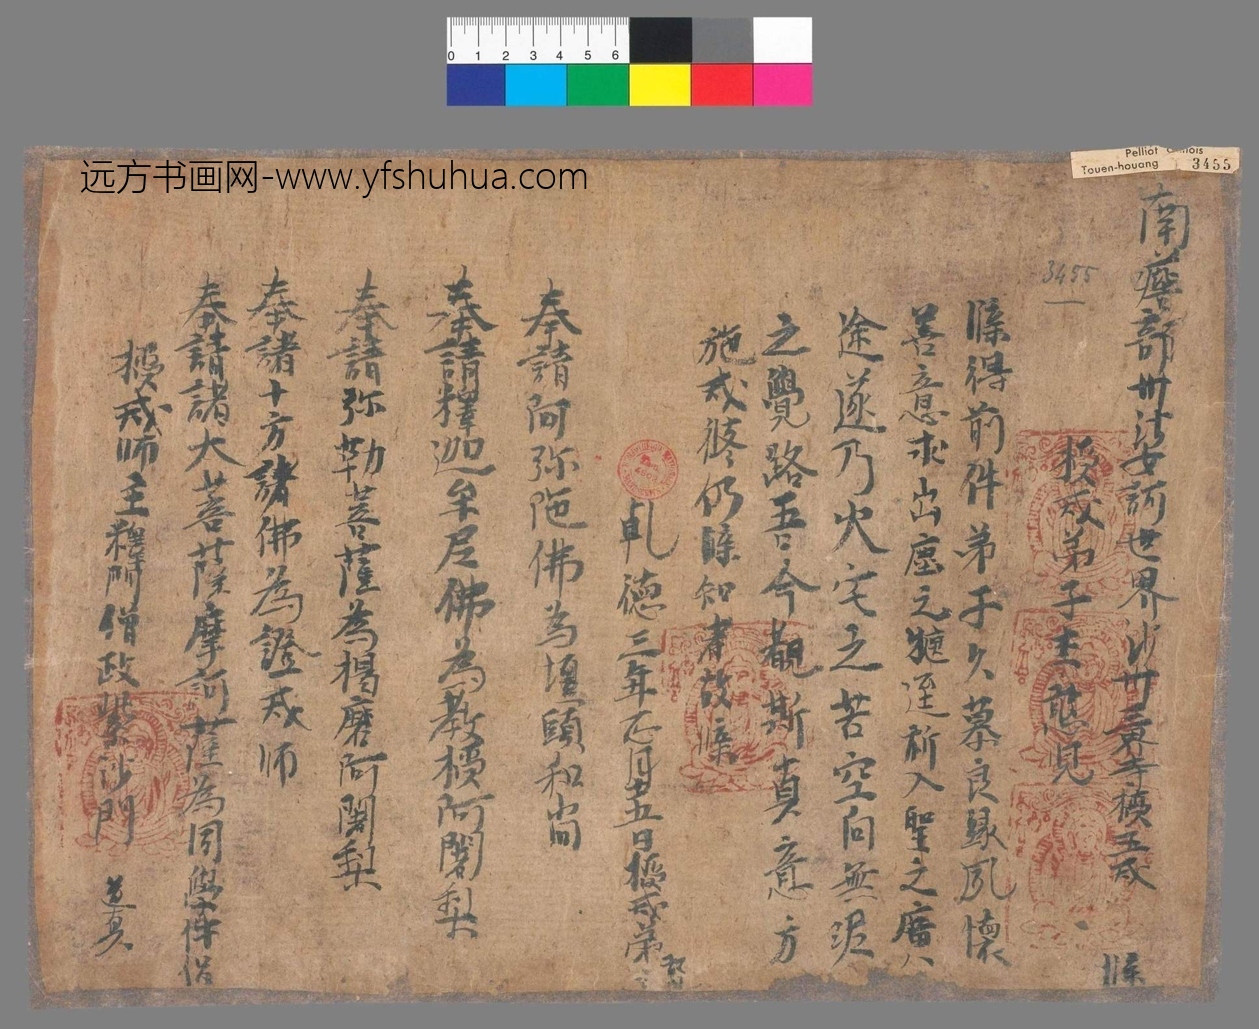 Pelliot Chinois
Touen-houang 3455
远方书画网-www.yfshuhua.com
0 1 2 3 4 5 6
3455
南贍部州娑訶世界沙州三界寺授五戒牒
授戒弟子李憨兒
牒得前件弟子久慕良緣夙懷
善意求出塵之
途遂乃火宅之苦空向無涅
之覺路吾今觀斯真意方
施戒牒仍牒知者故牒
乹德三年正月十五日授戒弟
奉請阿弥陁佛為壇頭和尚
奉請釋迦牟尼佛為教授阿闍梨
奉請弥勒菩薩為羯磨阿闍梨
奉請十方諸佛為證戒師
奉請諸大菩薩摩訶薩為同學伴侣
授戒師主釋門僧政賜紫沙門
道真